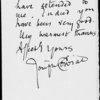 have extended to
me. Indeed you
have been very good.
My warmest thanks
Affectly Yours
Joseph Conrad